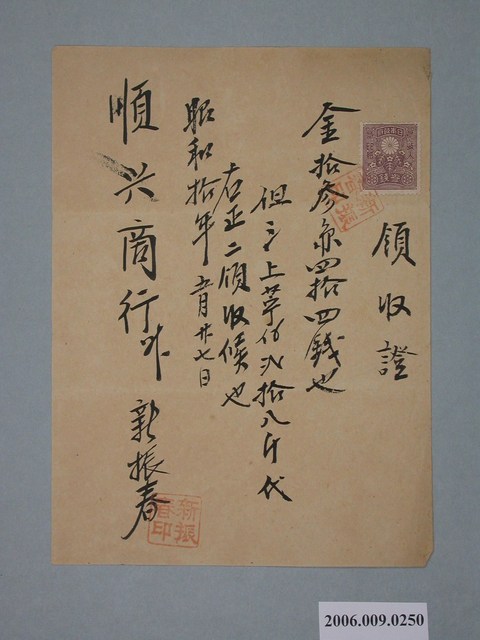 領收證
金拾參円四拾四錢也
但シ上茶仍弍拾八斤代
右正ニ領收候也
昭和拾年五月廿七日
順兴商行
新振春
新振春印
2006.009.0250